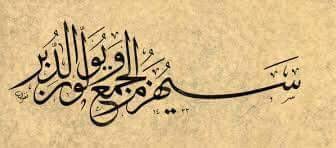 سيهزم الجمع ويولون الدبر
١٤٣٣